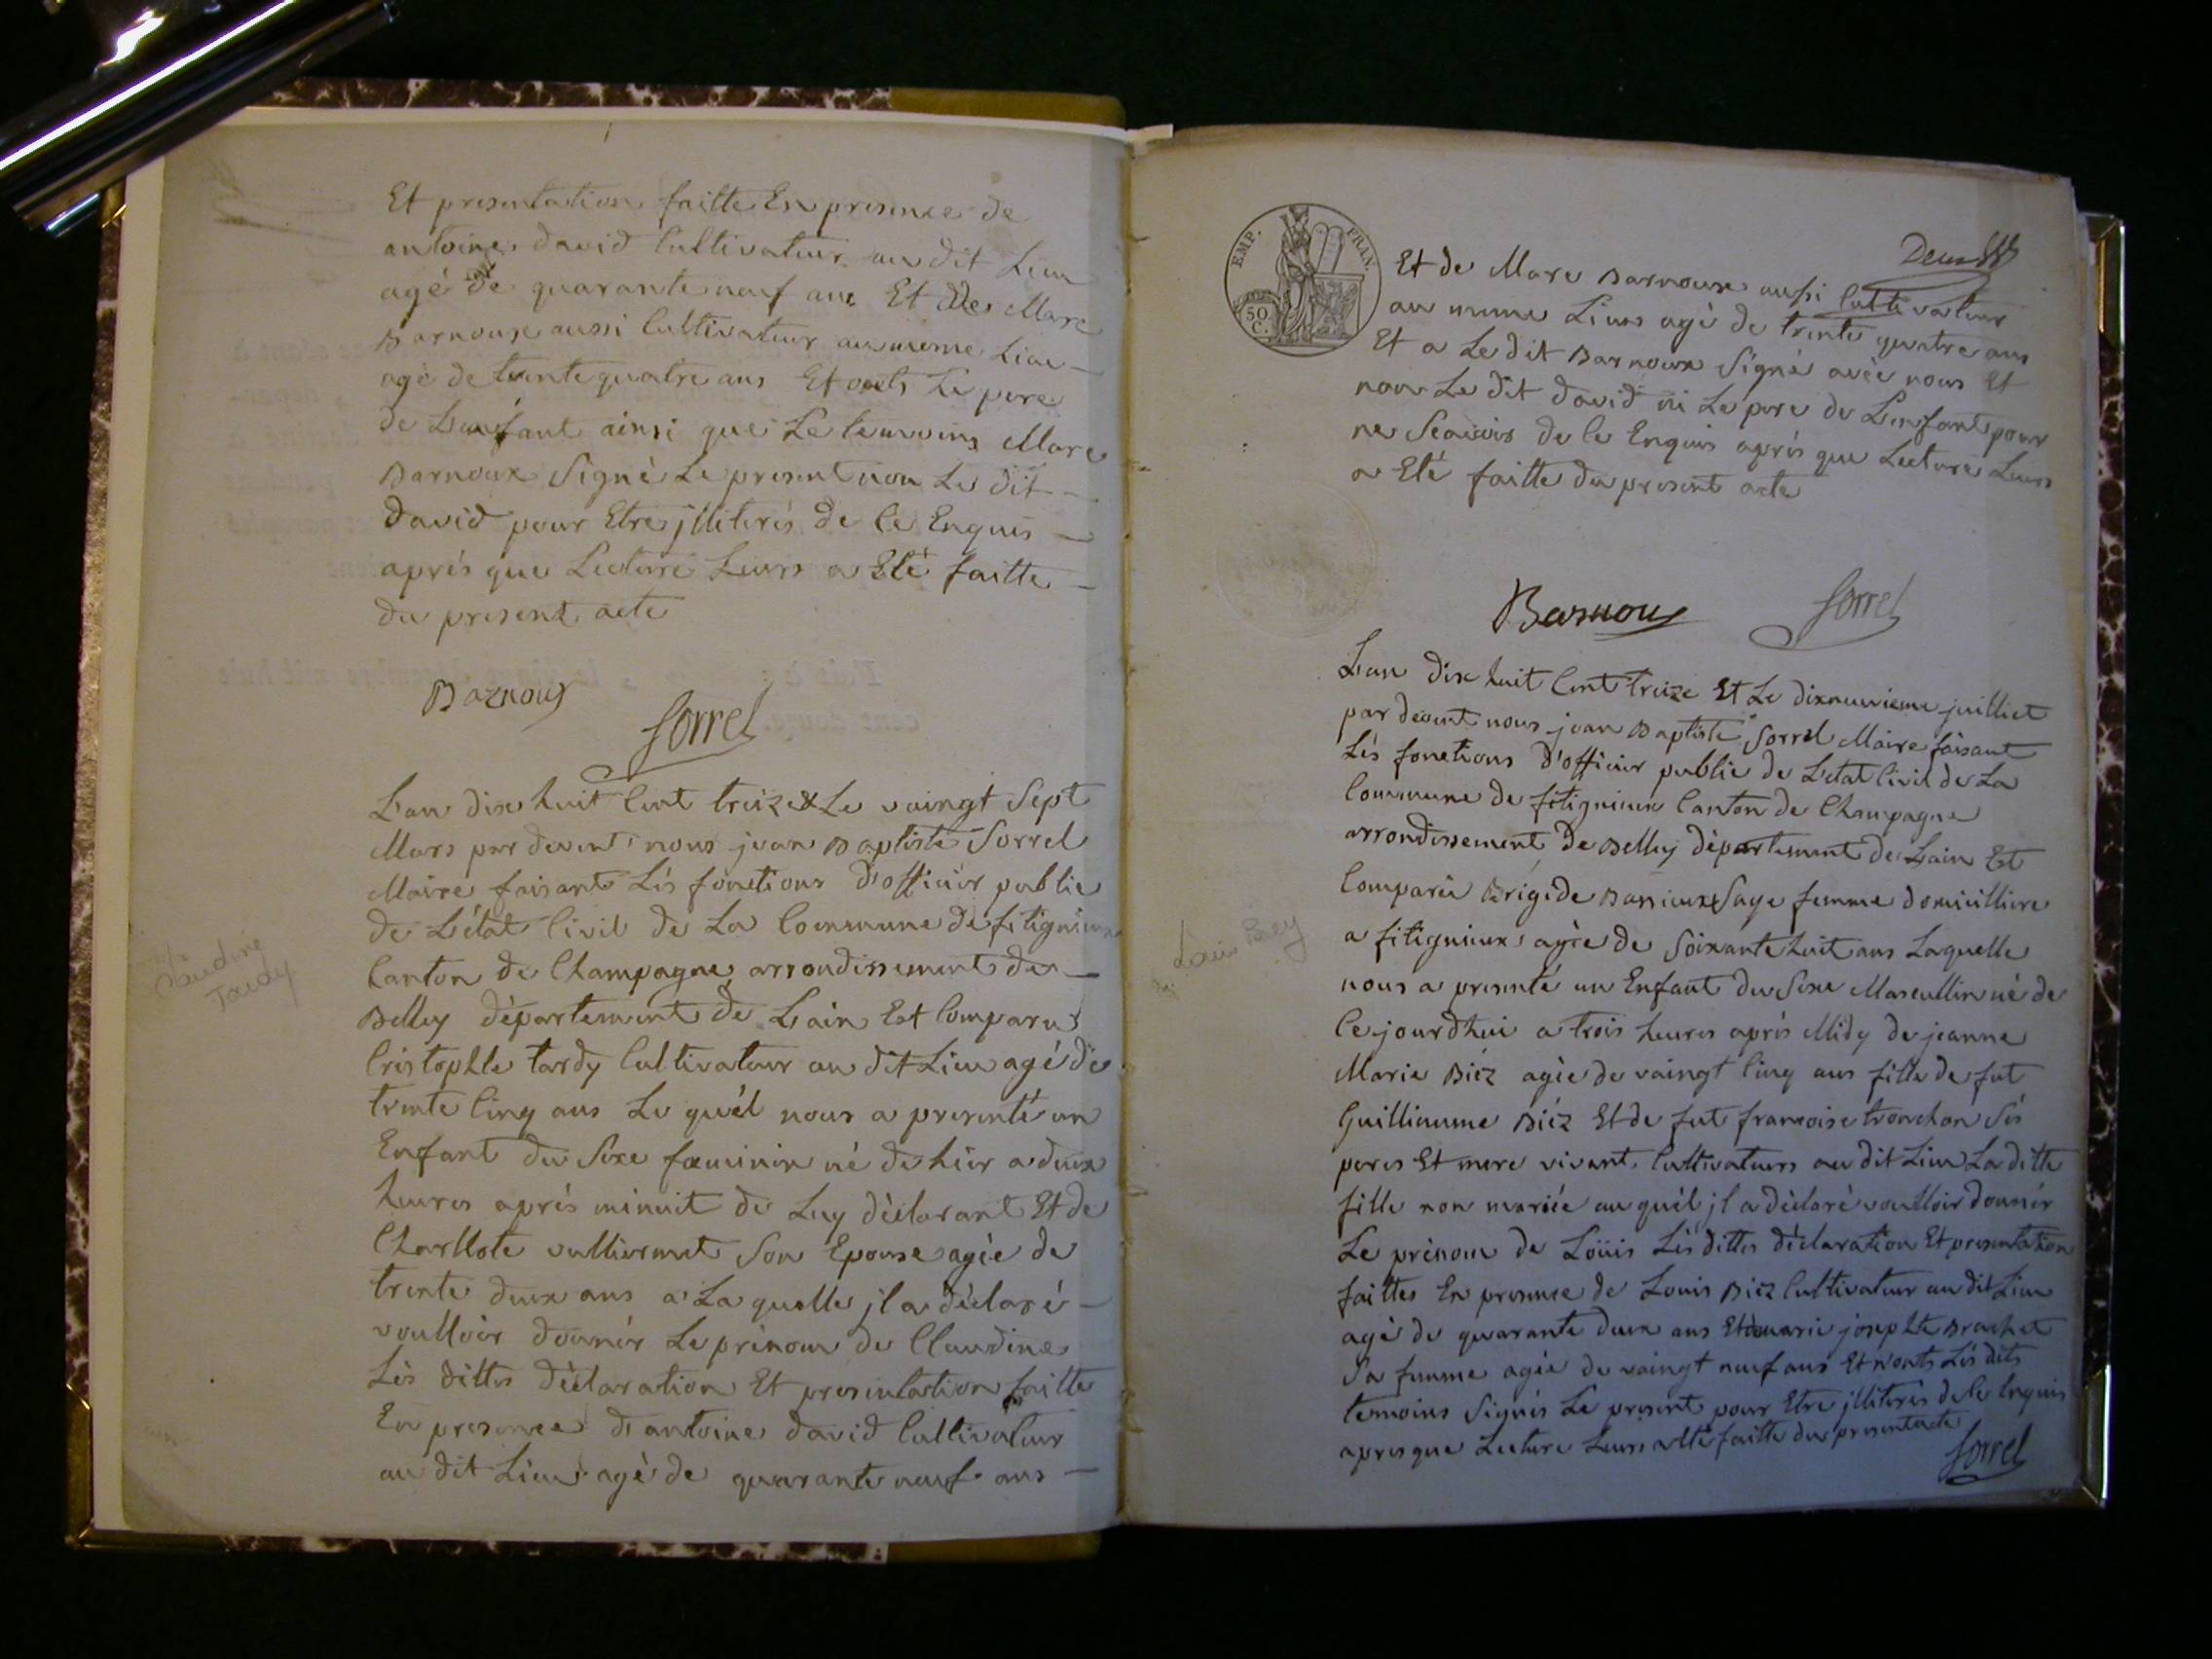 Et presentation faitte En presence de
antoine david Cultivateur au dit Lieu
agé de quarante neuf ans Et de Marc
Barnoux aussi Cultivateur au meme Lieu
agé de trente quatre ans Et onts Le pere
de Lenfant ainsi que Le temoins Marc
Barnoux Signé Le present non Le dit
david pour Etre jlliterés de Ce Enquis
aprés que Lecture Leurs a Eté faitte
du present acte
Barnoux
Sorrel
Lan dix huit Cent treize & Le vaingt Sept
Mars par devent nous jean Baptiste Sorrel
Maire faisant Lés fonctions d'officiér public
de L'état Civil de La Commune de fitignieux
Canton de Champagne arrondissement de
Belley département de Lain Est Comparu
Cristophle tardy Cultivateur au dit Lieu agé de
trente Cinq ans Le quél nous a presenté un
Enfant du Sexe fæminin né de hièr a deux
heures aprés minuit de Luy déclarant Et de
Charllote vulliermet Son Epouse agée de
trente deux ans a La quelle jl a déclaré
voulloir donnér Le prénom de Claudine
Lés dittes déclaration Et presentation faitte
En presence d'antoine david Cultivateur
au dit Lieu agé de quarante neuf ans
Claudine
Tardy
EMP. FRAN.
50
C.
Deux
Et de Marc Barnoux aussi Cultivateur
au meme Lieu agé de trente quatre ans
Et a Le dit Barnoux Signé avéc nous Et
non Le dit david ni Le pere de Lenfant pour
ne Scavoir de Ce Enquis aprés que Lecture Leurs
a Eté faitte du present acte
Barnoux
Sorrel
Lan dix huit Cent treize Et Le dixneuvieme juilliet
par devent nous jean Baptiste Sorrel Maire faisant
Lés fonctions d'officiér public de L'état Civil de La
Commune de fitignieux Canton de Champagne
arrondissement de Belley département de Lain Est
Comparüe Brigide Sage femme domicilliere
a fitignieux agée de Soixante huit ans Laquelle
nous a presenté un Enfant du Sexe Mascullin né de
Ce jourdhui a trois heures aprés Midy de jeanne
Marie Biéz agée de vaingt Cinq ans fille de fut
Guilliaume Biéz Et de fut francoise tronchon Sés
peres Et mere vivant Cultivateurs au dit Lieu La ditte
fille non mariée au quél jl a déclaré voulloir donnér
Le prénom de Loüis Lés dittes déclaration Et presentation
faittes En presence de Louis Biéz Cultivateur au dit Lieu
agé de quarante deux ans Et de marie josephte Brachet
Sa femme agée de vaingt neuf ans Et n'onts Lés dits
temoins Signés Le present pour Etre jlliterés de Ce Enquis
apres que Lecture Leurs a Eté faitte du present acte
Sorrel
Louis